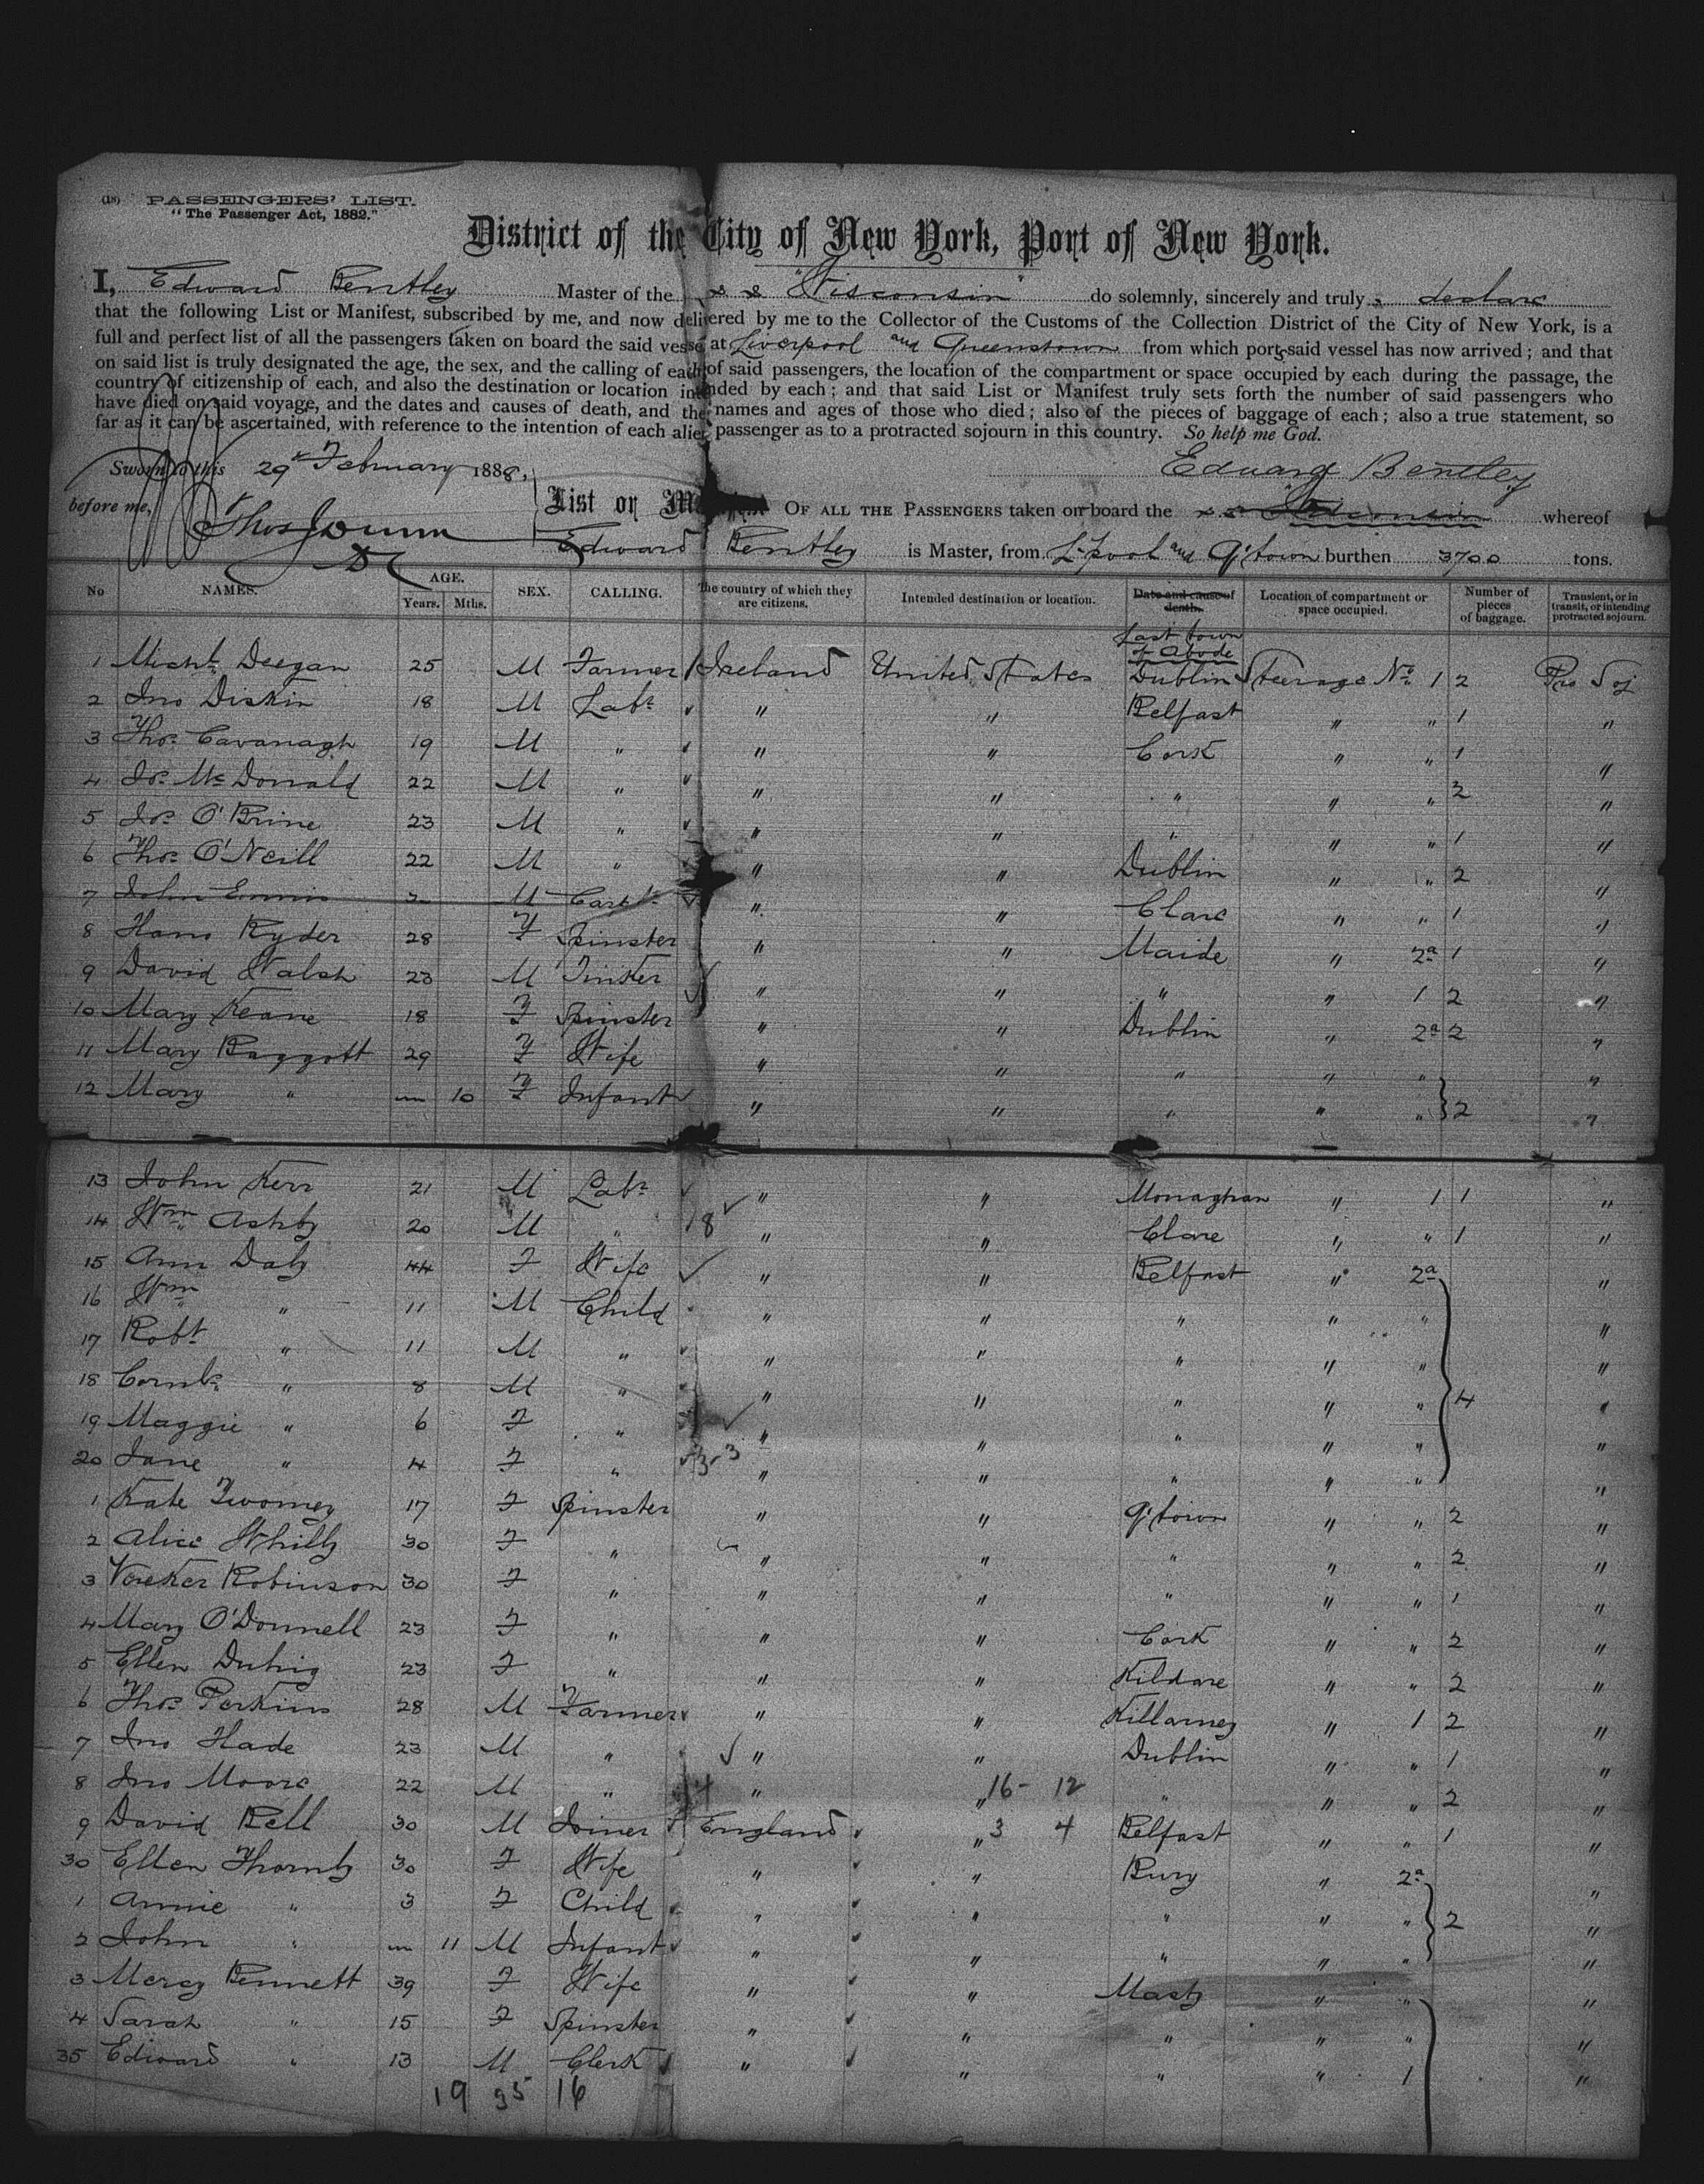 (18) PASSENGERS' LIST.
"The Passenger Act, 1882."
District of the City of New York, Port of New York.
I, Edward Bentley Master of the s s "Wisconsin" do solemnly, sincerely and truly declare
that the following List or Manifest, subscribed by me, and now delivered by me to the Collector of the Customs of the Collection District of the City of New York, is a
full and perfect list of all the passengers taken on board the said vessel at Liverpool and Queenstown from which port said vessel has now arrived; and that
on said list is truly designated the age, the sex, and the calling of each of said passengers, the location of the compartment or space occupied by each during the passage, the
country of citizenship of each, and also the destination or location intended by each; and that said List or Manifest truly sets forth the number of said passengers who
have died on said voyage, and the dates and causes of death, and the names and ages of those who died; also of the pieces of baggage of each; also a true statement, so
far as it can be ascertained, with reference to the intention of each alien passenger as to a protracted sojourn in this country. So help me God.
Sworn to this 29th February 1888, Edward Bentley
before me, Thos J Dunn
List or Manifest OF ALL THE PASSENGERS taken on board the s.s. Wisconsin whereof
Edward Bentley is Master, from L'pool and Q'town burthen 3700 tons.
No NAMES. AGE. Years. Mths. SEX. CALLING. The country of which they are citizens. Intended destination or location. Date and cause of death. Location of compartment or space occupied. Number of pieces of baggage. Transient, or in transit, or intending protracted sojourn.
Last town of Abode
1 Michl Deegan 25 M Farmer Ireland United States Dublin Steerage No. 1 2 Pro Soj
2 Jno Diskin 18 M Labr " " Belfast " " 1 "
3 Thos Cavanagh 19 M " " " Cork " " 1 "
4 Jos McDonald 22 M " " " " " " 2 "
5 Jos O'Brine 23 M " " " " " " 1 "
6 Thos O'Neill 22 M " " " Dublin " " 2 "
7 John Ennis M " " Clare " " 1 "
8 Hans Ryder 28 F Spinster " " Maide " 2a 1 "
9 David Walsh 23 M Tinker " " " " 1 2 "
10 Mary Keane 18 F Spinster " " Dublin " 2a 2 "
11 Mary Baggott 29 F Wife " " " " " "
12 Mary " 10 F Infant " " " " " 2 "
13 John Kerr 21 M Labr " " Monaghan " 1 1 "
14 Wm Ashby 20 M " 18 " " Clare " " 1 "
15 Ann Daly 44 F Wife " " Belfast " 2a "
16 Wm " 11 M Child " " " " " "
17 Robt " 11 M " " " " " " "
18 Cornls " 8 M " " " " " " 4 "
19 Maggie " 6 F " " " " " " "
20 Jane " 4 F " " " " " " "
1 Kate Twomey 17 F Spinster " " Q'town " " 2 "
2 Alice Whilly 30 F " " " " " " 2 "
3 Vereker Robinson 30 F " " " " " " 1 "
4 Mary O'Donnell 23 F " " " Cork " " 2 "
5 Ellen Duhig 23 F " " " Kildare " " 2 "
6 Thos Perkins 28 M Farmer " " Killarney " 1 2 "
7 Jno Hade 23 M " " " Dublin " " 1 "
8 Jno Moore 22 M " " " 16- 12 " " " 2 "
9 David Bell 30 M Joiner England " 3 4 Belfast " " 1 "
30 Ellen Thornly 30 F Wife " " Bury " 2a "
1 Annie " 3 F Child " " " " " 2 "
2 John " 11 M Infant " " " " " "
3 Mercy Bennett 39 F Wife " " " " "
4 Sarah " 15 F Spinster " " " " " "
35 Edward " 13 M Clerk " " " " 1 "
19 35 16